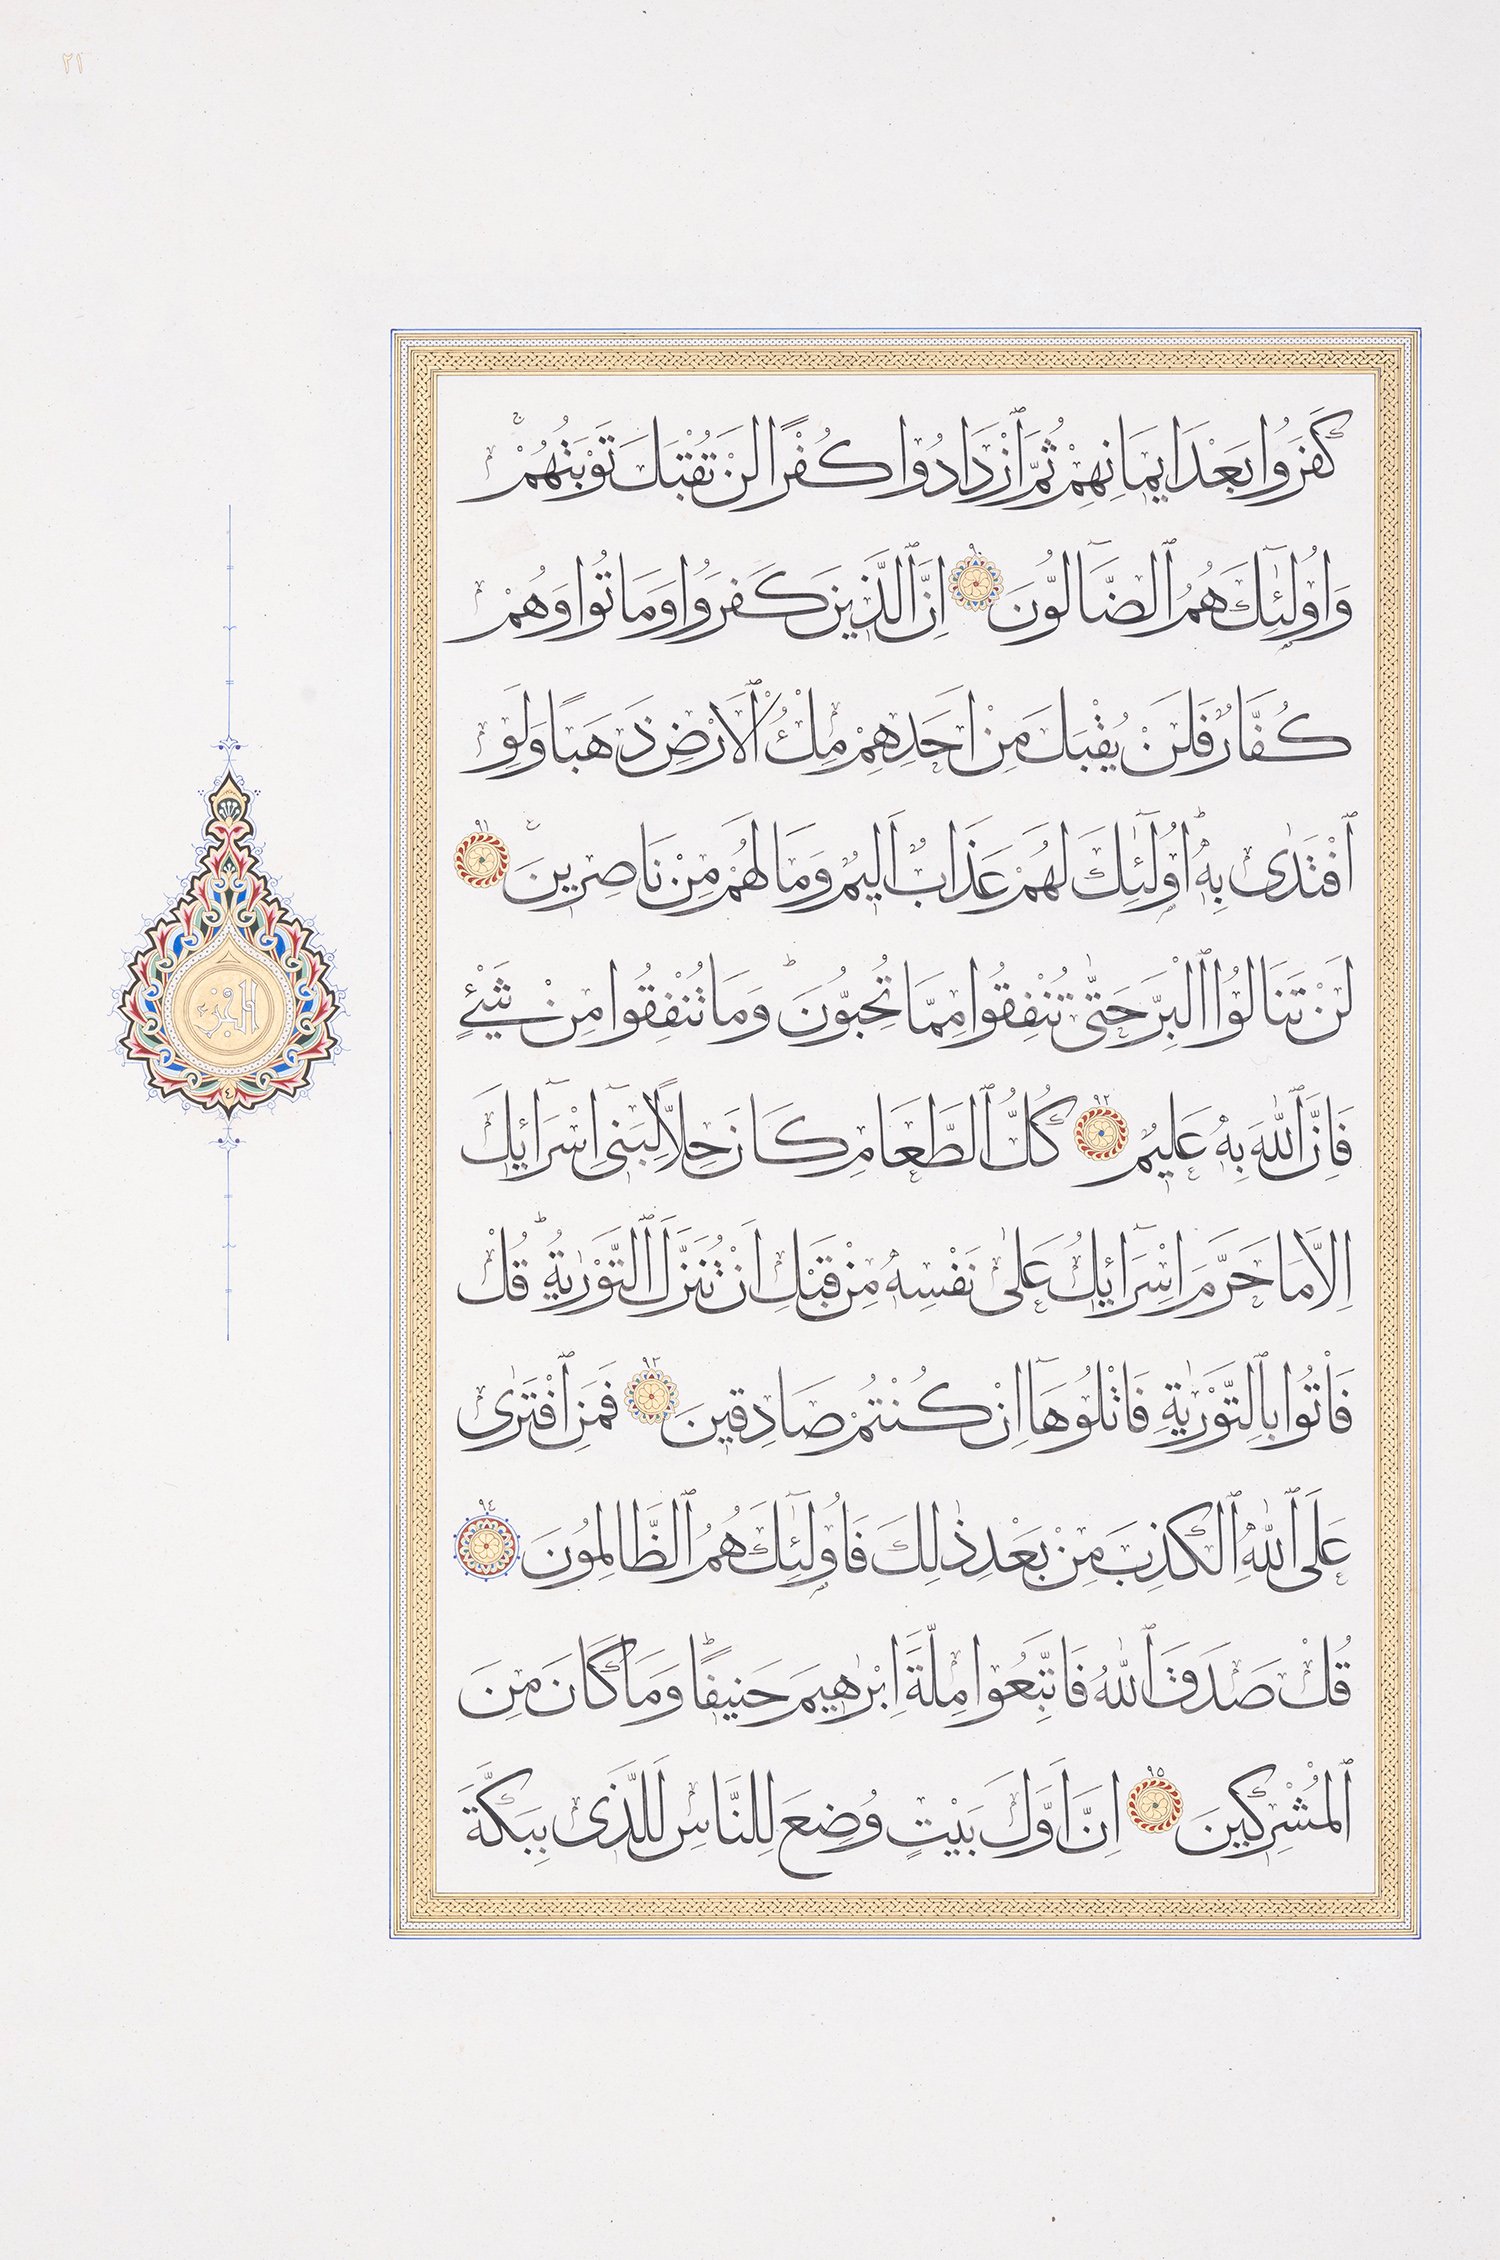 ٢١
كَفَرُوا بَعْدَ ايمَانِهِمْ ثُمَّ ٱزْدَادُوا كُفْرًا لَنْ تُقْبَلَ تَوْبَتُهُمْۚ
وَاُولٰٓئِكَ هُمُ ٱلضَّٓالُّونَ ٩٠ اِنَّ ٱلَّذينَ كَفَرُوا وَمَاتُوا وَهُمْ
كُفَّارٌ فَلَنْ يُقْبَلَ مِنْ اَحَدِهِمْ مِلْءُ ٱلْاَرْضِ ذَهَبًا وَلَوِ
ٱفْتَدٰى بِهٖؕ اُولٰٓئِكَ لَهُمْ عَذَابٌ اَليمٌ وَمَا لَهُمْ مِنْ نَاصِرينَ ٩١
لَنْ تَنَالُوا ٱلْبِرَّ حَتّٰى تُنْفِقُوا مِمَّا تُحِبُّونَؕ وَمَا تُنْفِقُوا مِنْ شَيْءٍ
فَاِنَّ ٱللّٰهَ بِهٖ عَليمٌ ٩٢ كُلُّ ٱلطَّعَامِ كَانَ حِلًّا لِبَنٓى اِسْرَٓائيلَ
اِلَّا مَا حَرَّمَ اِسْرَٓائيلُ عَلٰى نَفْسِهٖ مِنْ قَبْلِ اَنْ تُنَزَّلَ ٱلتَّوْرٰيةُؕ قُلْ
فَاْتُوا بِٱلتَّوْرٰيةِ فَاتْلُوهَٓا اِنْ كُنْتُمْ صَادِقينَ ٩٣ فَمَنِ ٱفْتَرٰى
عَلَى ٱللّٰهِ ٱلْكَذِبَ مِنْ بَعْدِ ذٰلِكَ فَاُولٰٓئِكَ هُمُ ٱلظَّالِمُونَ ٩٤
قُلْ صَدَقَ ٱللّٰهُ فَاتَّبِعُوا مِلَّةَ اِبْرٰهيمَ حَنيفًاؕ وَمَا كَانَ مِنَ
ٱلْمُشْرِكينَ ٩٥ اِنَّ اَوَّلَ بَيْتٍ وُضِعَ لِلنَّاسِ لَلَّذى بِبَكَّةَ
الجزء
٤